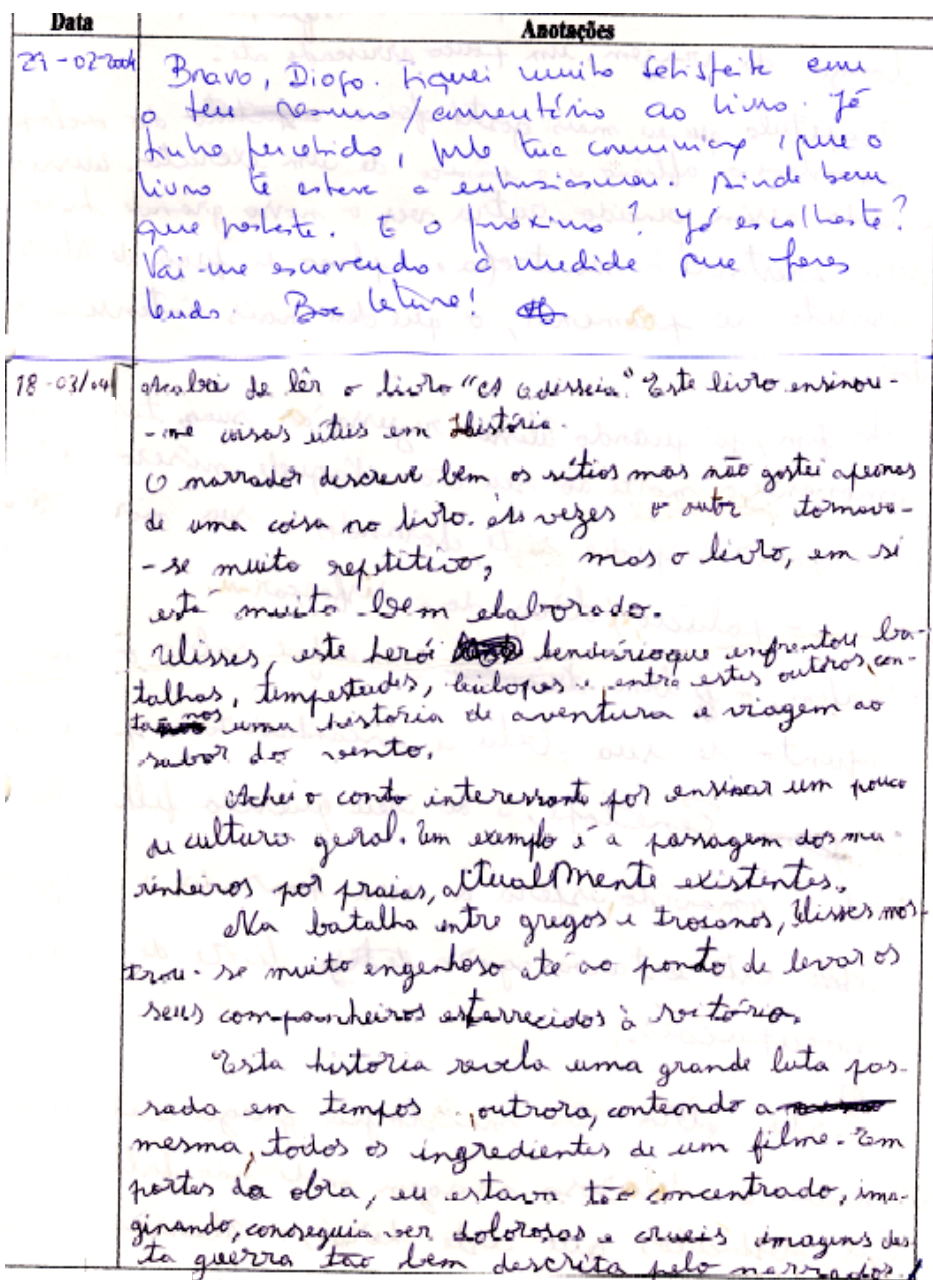 Data Anotações
27-02-2004 Bravo, Diogo. Fiquei muito satisfeita com
o teu resumo/comentário ao livro. Já
tinha percebido, pela tua comunicação, que o
livro te estava a entusiasmar. Ainda bem
que gostaste. E o próximo? Já escolheste?
Vai-me escrevendo à medida que fores
lendo. Boa leitura!
18-03/04 Acabei de lêr o livro "A Odisseia." Este livro ensinou-
-me coisas utéis em História.
O narrador descreve bem os sítios mas não gostei apeanas
de uma coisa no livro. Às vezes o autor tornava-
-se muito repetitivo, mas o livro, em si
está muito bem elaborado.
Ulisses, este herói lendário que enfrentou ba-
talhas, tempestades, ciclopes e, entre estes outros, con-
ta nos uma história de aventura e viagem ao
sabor do vento.
Achei o conto interessante por ensinar um pouco
de cultura geral. Um exemplo é a passagem dos ma
rinheiros por praias, actualmente existentes.
Na batalha entre gregos e troianos, Ulisses mos-
trou-se muito engenhoso até ao ponto de levar os
seus companheiros esterrecidos à vitória.
Esta história revela uma grande luta pas-
sada em tempos outrora, contendo a
mesma, todos os ingredientes de um filme. Em
partes da obra, eu estava tão concentrado, ima-
ginando, conseguia ver dolorosas e crueis imagens des
ta guerra tão bem descrita pelo narrador.